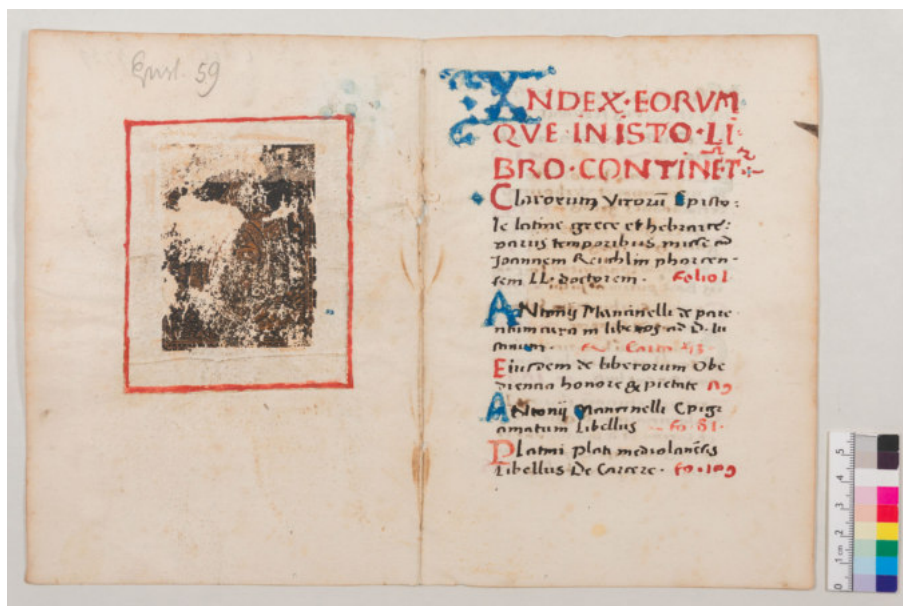 59
INDEX·EORVM
QVE·IN ISTO·LI
BRO·CONTINĒT
Clarorum Virorū Episto:
le latine grece et hebraice:
varijs temporibus misse ad
Joannem Reuchlin phorcen-
sem LL· doctorem· folio 1
ANtonij Mancinelli de pare
ntum cura in liberos ad D· Iu
Eiusdem de liberorum Obe
dientia honore & pietate
ANtonij Mancinelli Epigr
amatum Libellus fo· 81·
Platini plati mediolanēsis
Libellus De Carcere· fo· 109